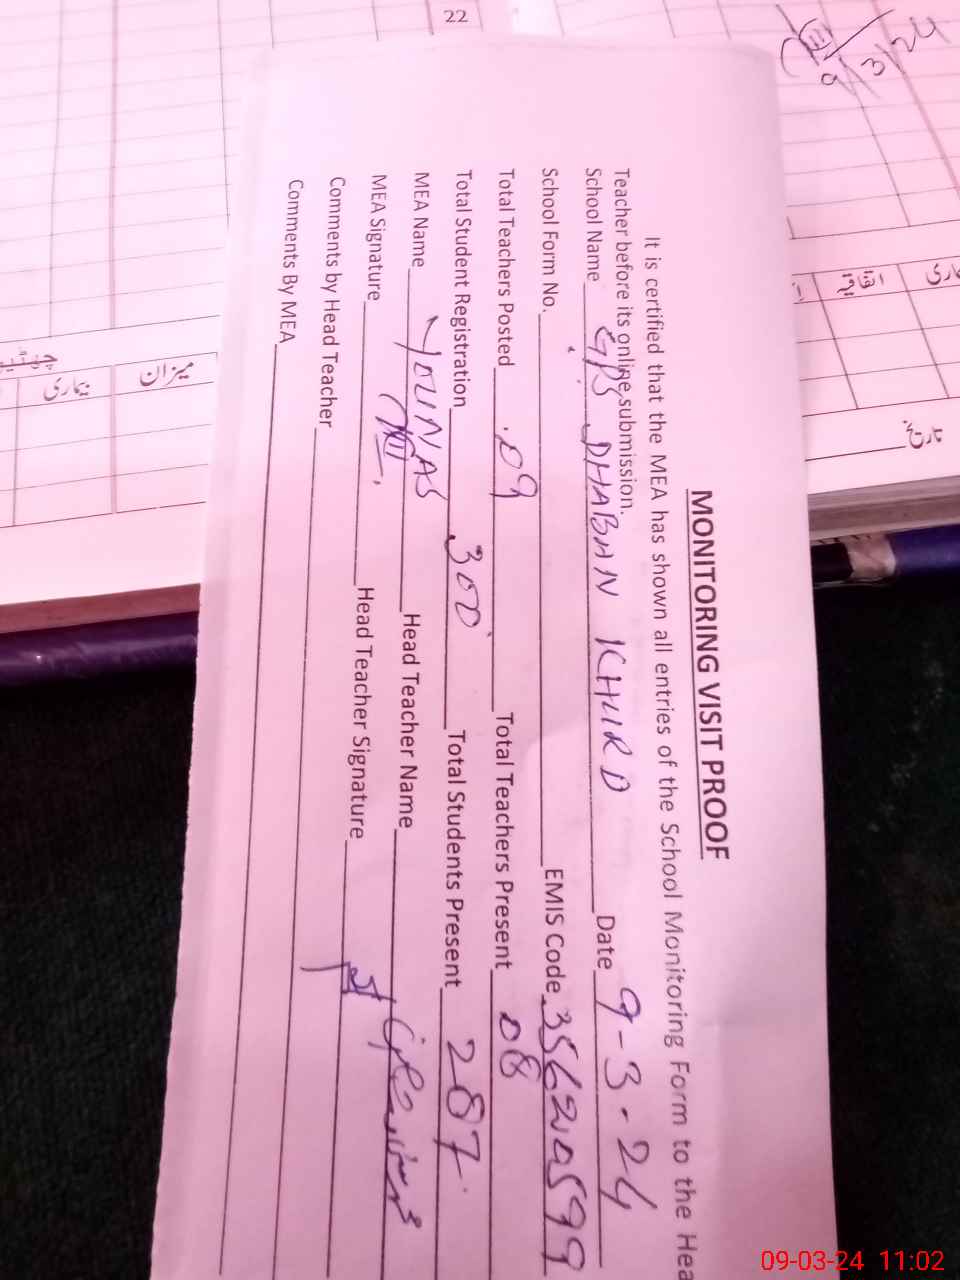 22
9/3/24
بیماری
اتفاقیہ
تاریخ
میزان
بیماری
MONITORING VISIT PROOF
It is certified that the MEA has shown all entries of the School Monitoring Form to the Hea
Teacher before its online submission.
School Name GPS DHABAN KHURD Date 9-3-24
School Form No. EMIS Code
Total Teachers Posted 09 Total Teachers Present 08
Total Student Registration 300 Total Students Present 287
MEA Name YOUNAS Head Teacher Name
MEA Signature Head Teacher Signature
Comments by Head Teacher
Comments By MEA
09-03-24 11:02